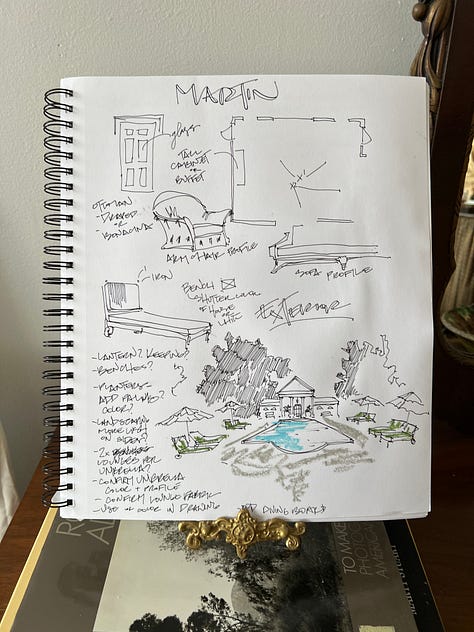 MARTIN
glass
TALL
CABINET
or
BUFFET
OTTOMAN
- DRAPED
or
- BONACINA
ARM CHAIR PROFILE
SOFA PROFILE
IRON
BENCH
SHUTTER COLOR
OF HOUSE
OR
WHITE
EXTERIOR
- LANTERN? KEEPING?
- BENCHES?
- PLANTERS
ADD PALMS?
COLOR?
- LANDSCAPING
ON SIDES?
- 2x
LOUNGES PER
UMBRELLA?
- CONFIRM UMBRELLA
COLOR + PROFILE
- CONFIRM LOUNGE FABRIC
- USE OF COLOR IN DRAWING
DIVING BOARD
TO MAKE
PHOTO
AMERICA